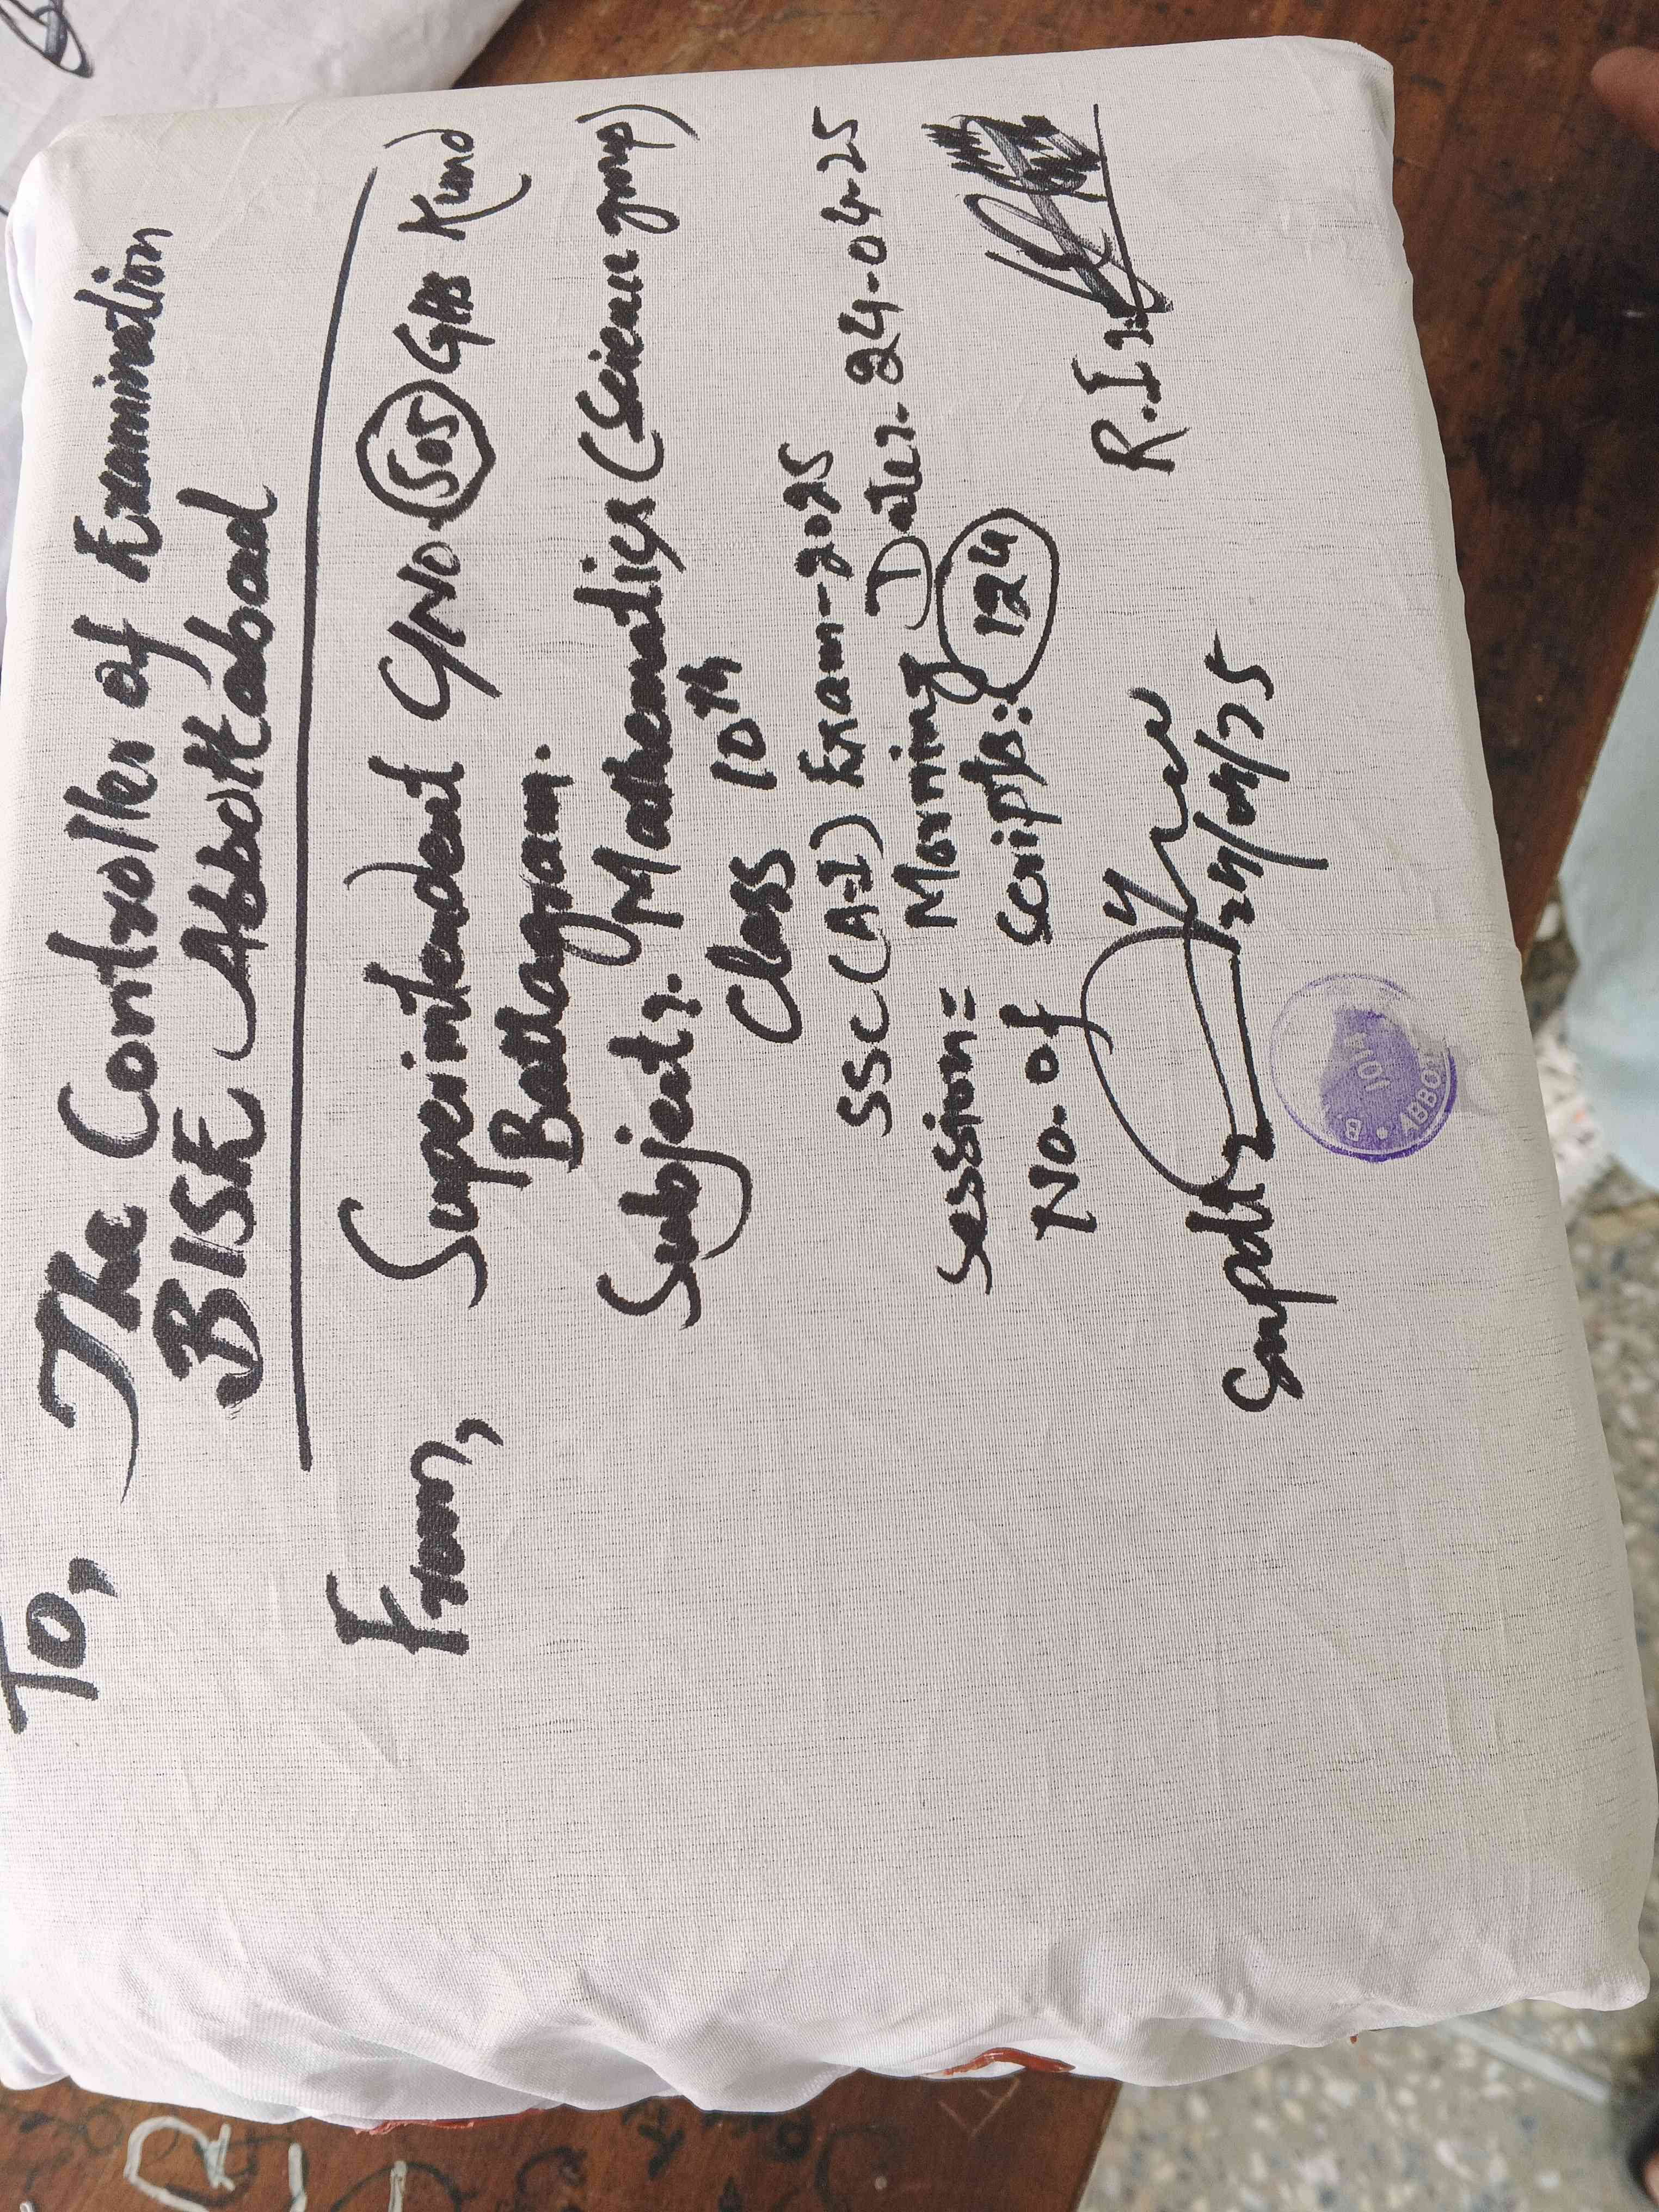 To,
The Controller of Examination
BISE Abbottabad
From,
Superintendent C/No. 505 GHS Kund
Battagram.
Subject:- Mathematics (Science group)
Class 10th
SSC (A-I) Exam-2025
Session= Morning Date:- 24-04-25
No. of Scripts: 124
R.I:-
Supdt:-
24/04/25
B
1014
ABBO